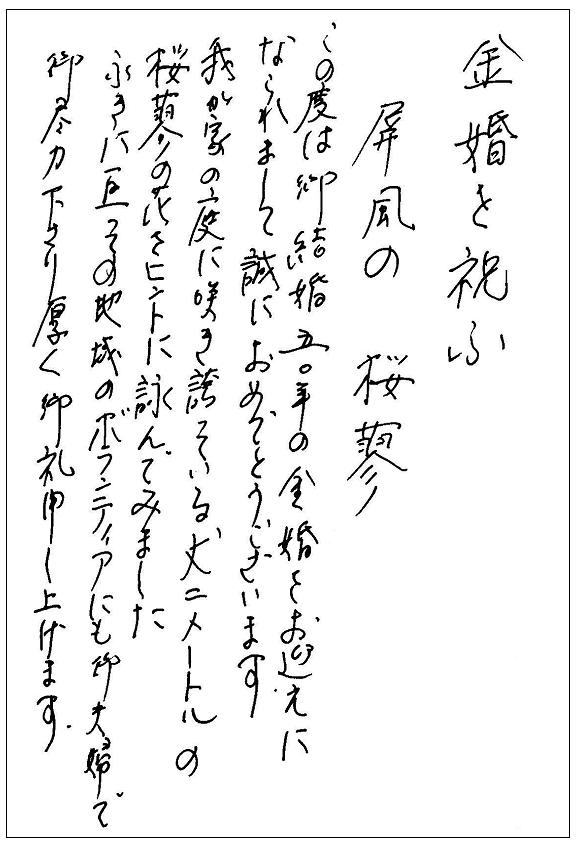 金婚を祝ふ
屏風の 桜蓼
この度は御結婚五〇年の金婚をお迎えに
なられまして誠におめでとうございます
我が家の庭に咲き誇っている丈二メートルの
桜蓼の花をヒントに詠んでみました
永きに亘ってその地域のボランティアにも御夫婦で
御尽力下さり厚く御礼申し上げます。